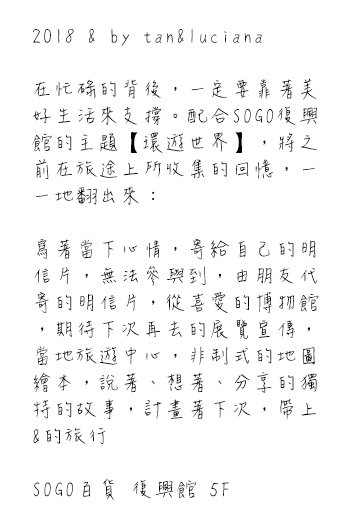 2018 & by tan&luciana
在忙碌的背後，一定要靠著美
好生活來支撐。配合SOGO復興
館的主題【環遊世界】，將之
前在旅途上所收集的回憶，一
一地翻出來：
寫著當下心情，寄給自己的明
信片，無法參與到，由朋友代
寄的明信片，從喜愛的博物館
，期待下次再去的展覽宣傳，
當地旅遊中心，非制式的地圖
繪本，說著、想著、分享的獨
特的故事，計畫著下次，帶上
&的旅行
SOGO百貨 復興館 5F